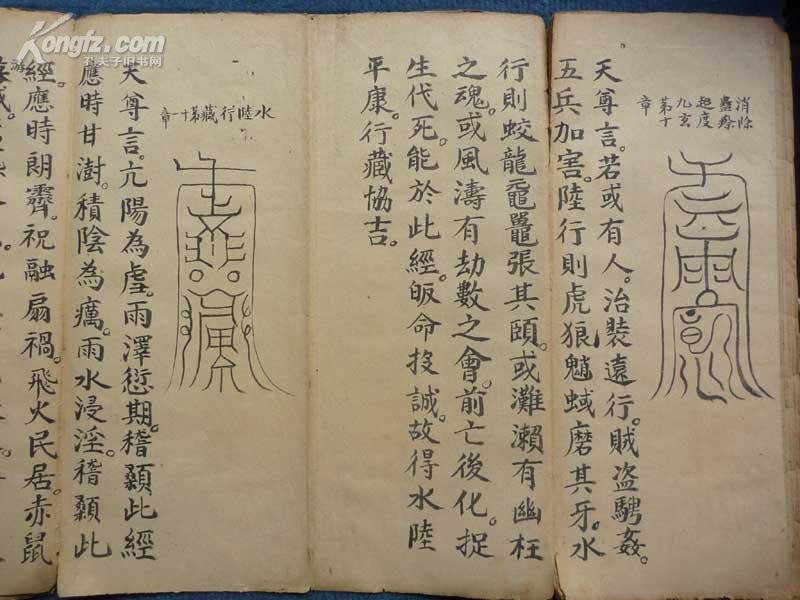 消除
蠱療
起度
九玄
第十
章
天尊言。若或有人。治裝遠行。賊盗騁姦。
五兵加害。陸行則虎狼魈蜮磨其牙。水
行則蛟龍黿鼉張其頤。或灘瀨有幽枉
之魂。或風濤有劫數之會。前亡後化。捉
生代死。能於此經。皈命投誠。故得水陸
平康。行藏協吉。
水陸行藏第十一章
天尊言。亢陽為虐。雨澤愆期。稽顙此經
應時甘澍。積陰為癘。雨水浸淫。稽顙此
經。應時朗霽。祝融扇禍。飛火民居。赤鼠
Kongfz.com
孔夫子旧书网